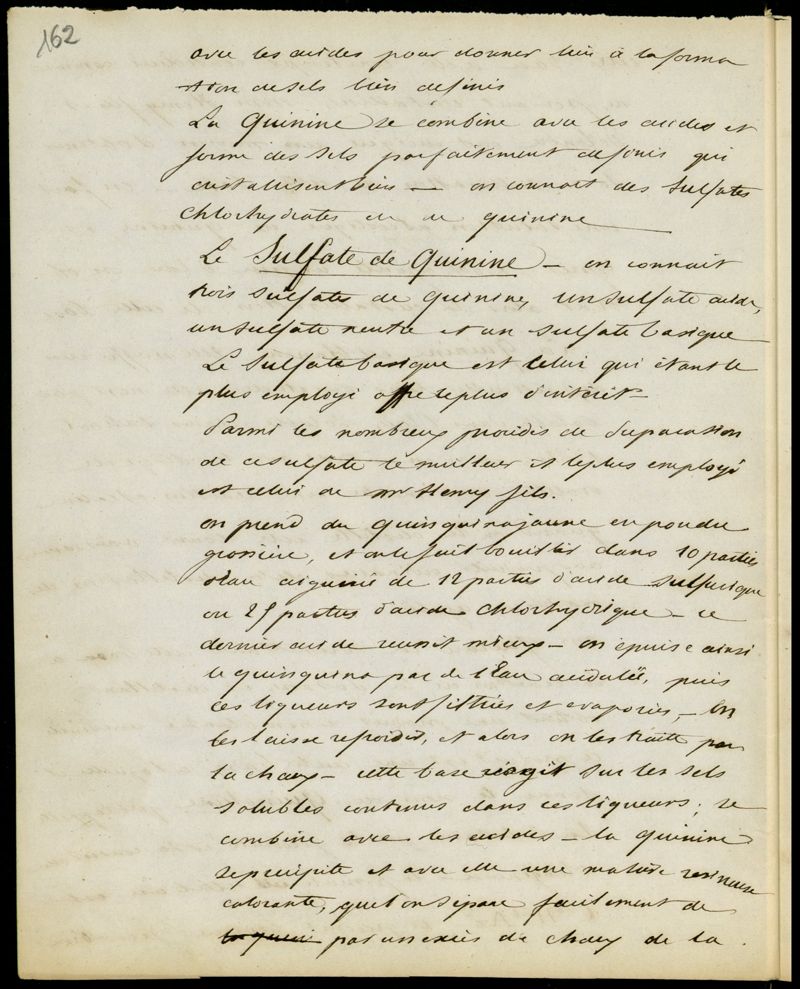 162
avec les acides pour donner lieu à la forma
tion de sels bien definis
La Quinine se combine avec les acides et
forme des sels parfaitement definis qui
cristallisent bien — on connait des Sulfates
Chlorhydrates de quinine
Le Sulfate de Quinine — on connait
trois sulfates de quinine, un sulfate acide,
un sulfate neutre et un sulfate basique
Le Sulfate basique est celui qui étant le
plus employé offre le plus d'intérêt —
Parmi les nombreux procédés de Separation
de ce sulfate le meilleur et le plus employé
est celui de Mr Henry fils.
on prend du quinquina jaune en poudre
grossière, et on le fait bouillir dans 10 parties
d'eau aiguisée de 12 parties d'acide sulfurique
ou 25 parties d'acide Chlorhydrique — ce
dernier acide reussit mieux — on épuise ainsi
le quinquina par de l'Eau acidulée, puis
ces liqueurs sont filtrées et evaporées, — On
les laisse refroidir, et alors on les traite par
la chaux — cette base réagit sur les sels
solubles contenus dans ces liqueurs ; se
combine avec les acides — la quinine
se precipite et avec elle une matière resineuse
colorante, que l'on sépare facilement de
par un excès de chaux de la